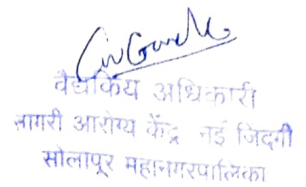 वैद्यकिय अधिकारी
नागरी आरोग्य केंद्र नई जिंदगी
सोलापूर महानगरपालिका